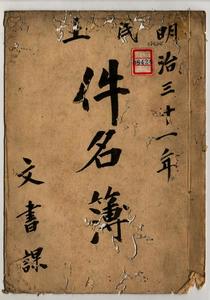 明治三十一年
土民
件名簿
文書課